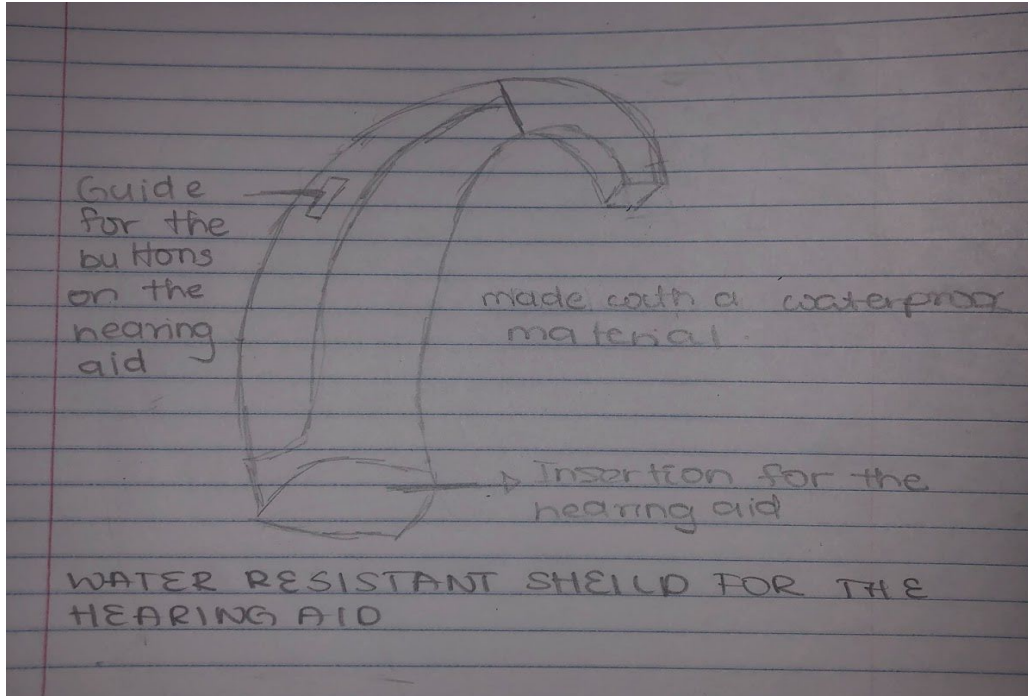 Guide
for the
buttons
on the
hearing
aid
made with a waterproof
material.
Insertion for the
hearing aid
WATER RESISTANT SHEILD FOR THE
HEARING AID